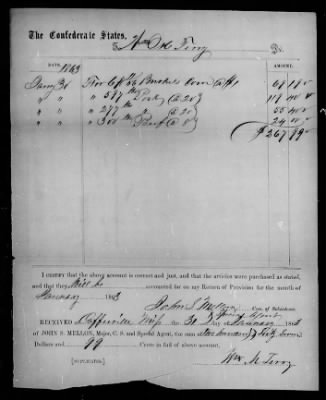 The Confederate States,
To Wm M Terry Dr.
DATE. AMOUNT.
1863
Jany 30 For Bushels Corn @ $1
" " " 597 lbs Pork @ 20
" " " 277 " " @ 20 55 40
" " " 300 lbs Beef @ 8 24 00
$ 267
I CERTIFY that the above account is correct and just, and that the articles were purchased as stated,
and that they Will be accounted for on my Return of Provision for the month of
January 1863
John S Mellon
Com. of Subsistence.
RECEIVED Miss the 30 of January 1863
OF JOHN S. MELLON, Major, C. S. and Special Agent, the sum of two hundred & Sixty Seven
Dollars and 99 Cents in full of above account.
[DUPLICATE.]
Wm M Terry